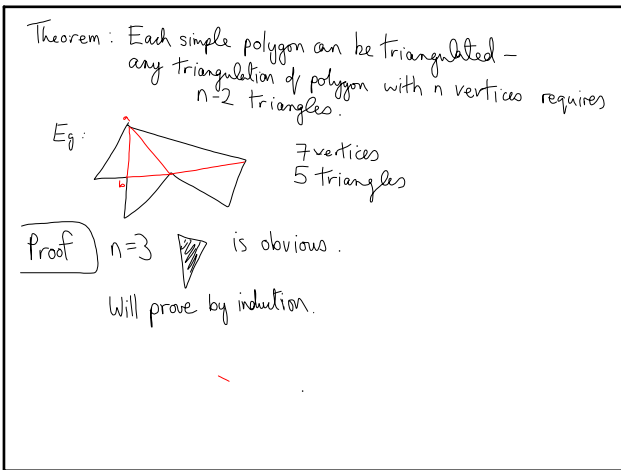 Theorem: Each simple polygon can be triangulated –
any triangulation of polygon with n vertices requires
n-2 triangles.
Eg:
a
7 vertices
5 triangles
b
Proof n=3 is obvious.
Will prove by induction.